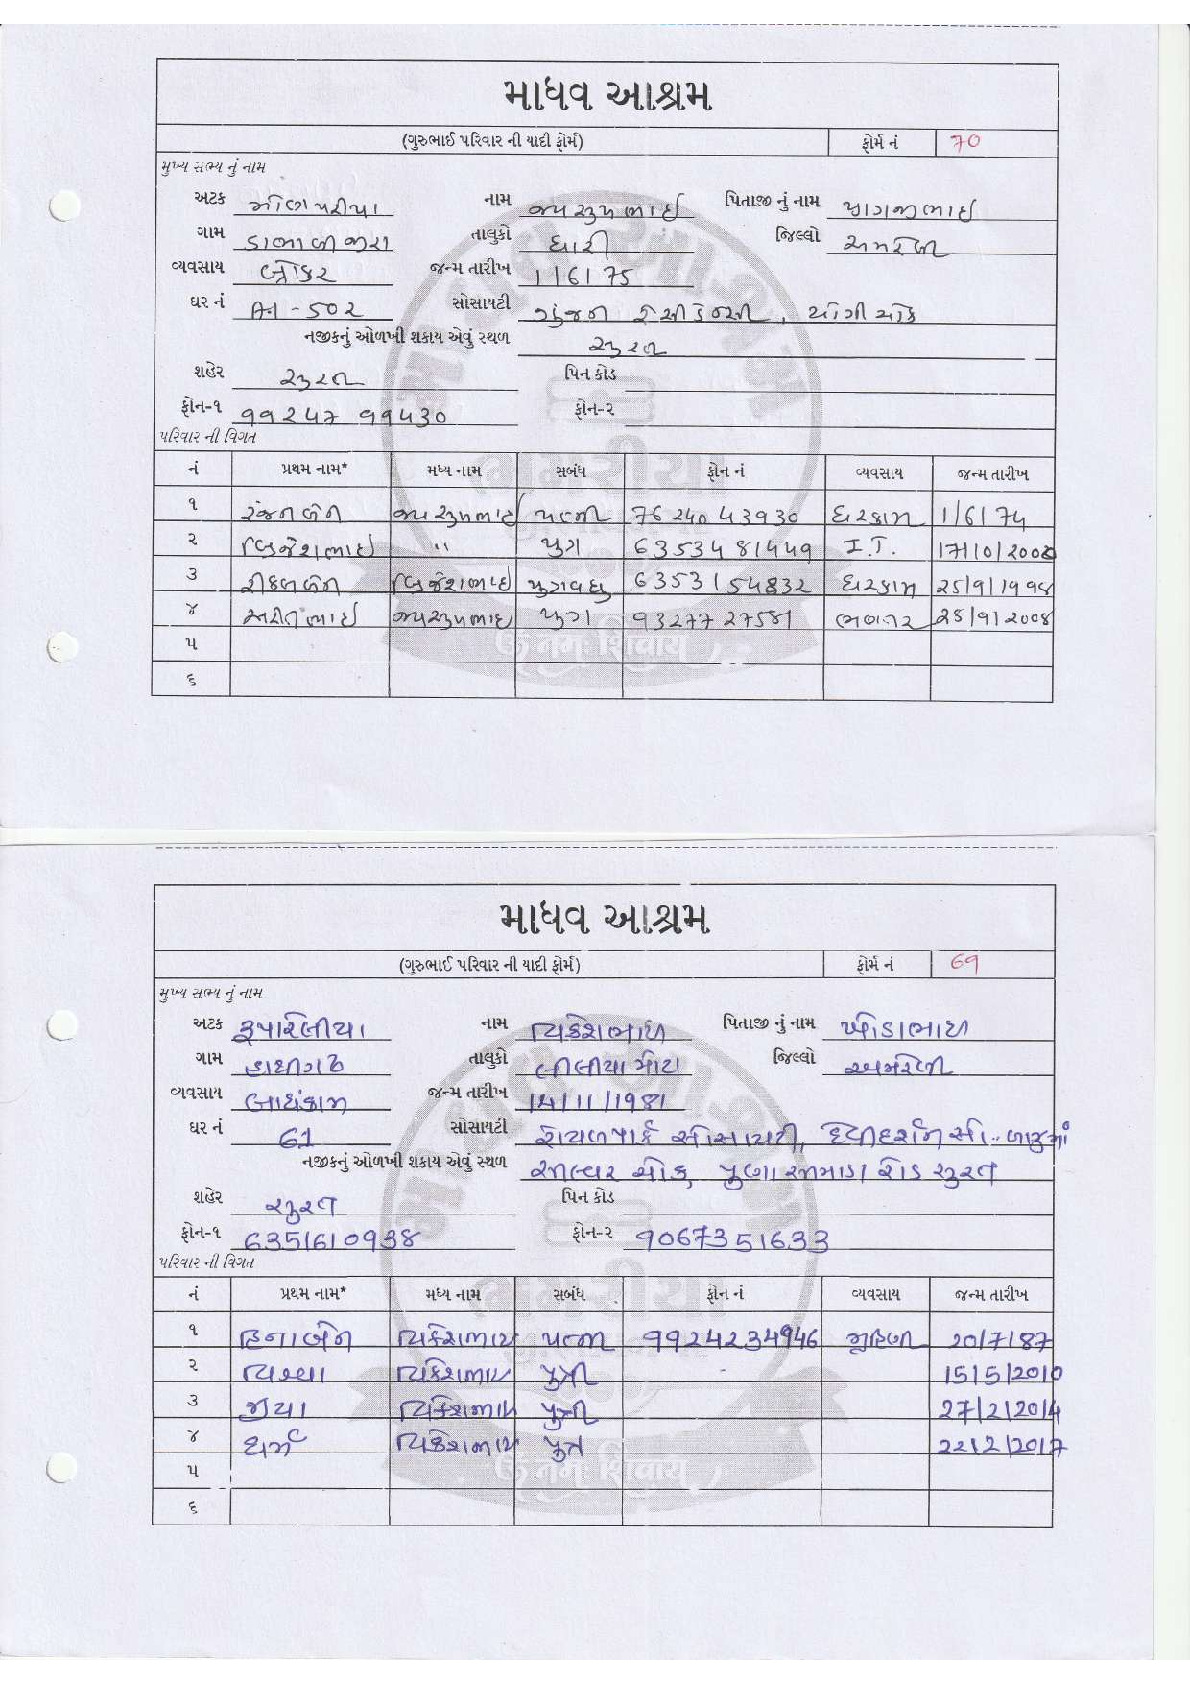 માધવ આશ્રમ
(ગુરુભાઈ પરિવાર ની યાદી ફોર્મ) ફોર્મ નં 70
મુખ્ય સભ્ય નું નામ
અટક નામ જયસુખભાઈ પિતાજી નું નામ પાગજીભાઈ
ગામ ડાભાળીજીરા તાલુકો ધારી જિલ્લો અમરેલી
વ્યવસાય બ્રોકર જન્મ તારીખ 1/6/75
ઘર નં A1-502 સોસાયટી ગુંજન રેસીડેન્સી, યોગીચોક
નજીકનું ઓળખી શકાય એવું સ્થળ સુરત
શહેર સુરત પિન કોડ
ફોન-૧ ૧૧૨૪7 ૧૧૫૩0 ફોન-૨
પરિવાર ની વિગત
નં પ્રથમ નામ* મધ્ય નામ સબંધ ફોન નં વ્યવસાય જન્મ તારીખ
૧ રંજનબેન જયસુખભાઈ પત્ની 76240 43930 ઘરકામ 1/6/74
૨ બ્રિજેશભાઇ " પુત્ર 63534 81449 I.T. 17/10/2000
૩ બ્રિજેશભાઇ પુત્રવધુ 63531 54832 ઘરકામ 25/9/1998
૪ જયસુખભાઇ પુત્ર 93277 27581 ભણતર 25/9/2008
૫
૬
માધવ આશ્રમ
(ગુરુભાઈ પરિવાર ની યાદી ફોર્મ) ફોર્મ નં 69
મુખ્ય સભ્ય નું નામ
અટક રૂપારેલીયા નામ વિકેશભાઈ પિતાજી નું નામ ખોડાભાઈ
ગામ હાથીગઢ તાલુકો લીલીયા મોટા જિલ્લો અમરેલી
વ્યવસાય બાંધકામ જન્મ તારીખ 14/11/1981
ઘર નં 61 સોસાયટી સોસાયટી, દેવીદર્શન સો.. બાજુમાં
નજીકનું ઓળખી શકાય એવું સ્થળ ચોક, પુણા રોડ સુરત
શહેર સુરત પિન કોડ
ફોન-૧ 6351610938 ફોન-૨ 9067351633
પરિવાર ની વિગત
નં પ્રથમ નામ* મધ્ય નામ સબંધ ફોન નં વ્યવસાય જન્મ તારીખ
૧ હિનાબેન વિકેશભાઈ પત્ની 9924234946 ગૃહિણી 20/7/87
૨ વિકેશભાઈ પુત્રી 15/5/2010
૩ જીયા વિકેશભાઈ પુત્રી 27/2/2014
૪ ધર્મ વિકેશભાઈ પુત્ર 22/2/2017
૫
૬
ૐ નમઃ શિવાય